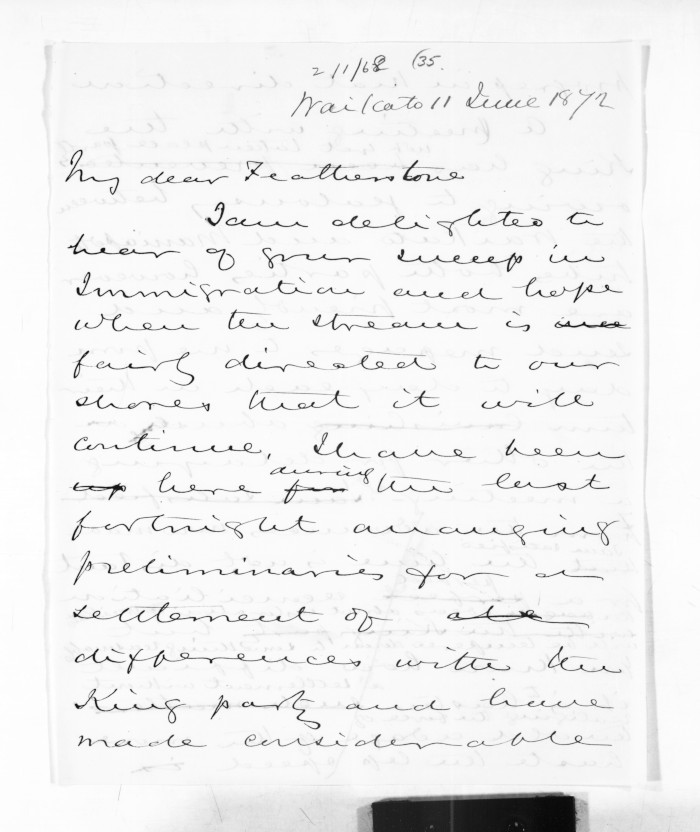 2/1/68 (35.
Waikato 11 June 1872
My dear Featherstone
I am delighted to
hear of your success in
Immigration and hope
when the stream is
fairly directed to our
shores that it will
continue. I have been
up here during for the last
fortnight arranging
preliminaries for a
settlement of
differences with the
King party and have
made considerable